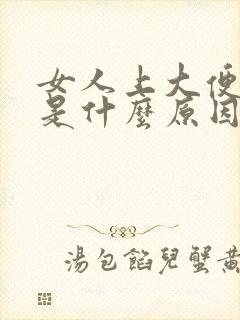 女人上大便
是什麼原因
湯包餡兒蟹黃